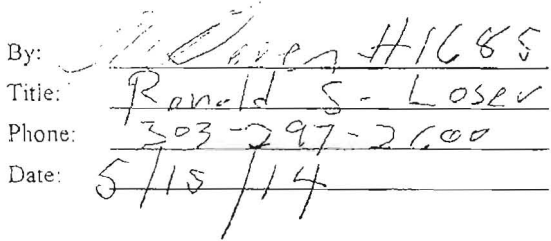 By: #1685
Title: Ronald S. Loser
Phone: 303-297-2600
Date: 5/15/14